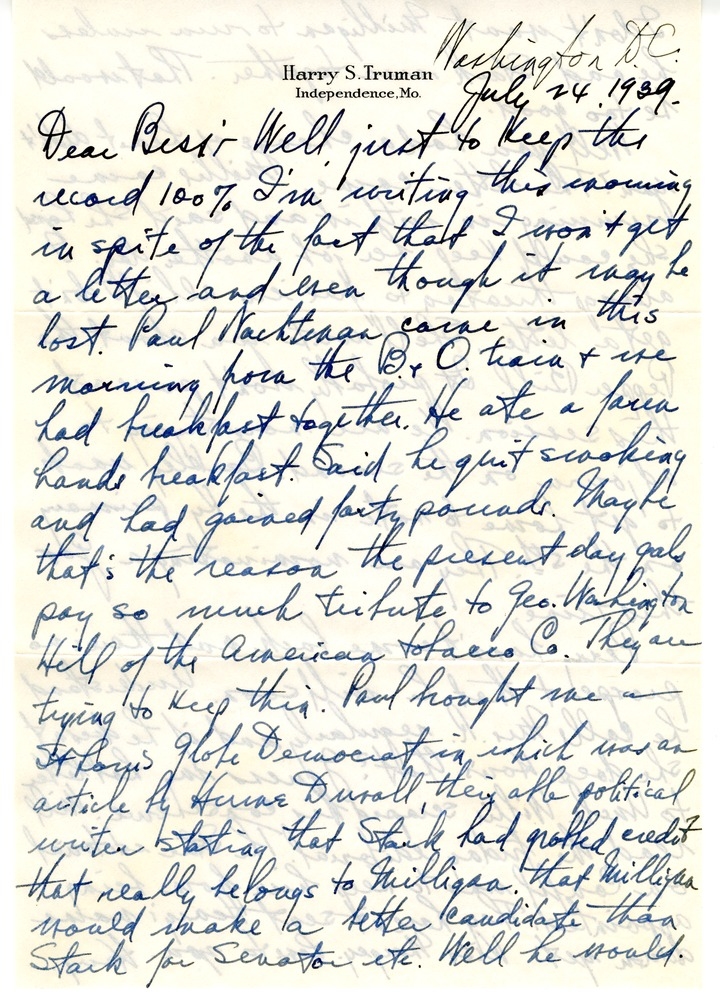 Washington D.C.
Harry S. Truman
Independence, Mo.
July 24, 1939.
Dear Bess:- Well, just to keep the
record 100% I'm writing this morning
in spite of the fact that I won't get
a letter and even though it may be
lost. Paul Nachtman came in this
morning from the B. & O. train & we
had breakfast together. He ate a farm
hands breakfast. Said he quit smoking
and had gained forty pounds. Maybe
that's the reason the present day gals
pay so much tribute to Geo. Washington
Hill of the American Tobacco Co. They are
trying to keep thin. Paul bought me a
St Louis Globe Democrat in which was an
article by Duvall, their able political
writer stating that Stark had grabbed credit
that really belongs to Milligan. That Milligan
would make a better candidate than
Stark for Senator etc. Well he would.